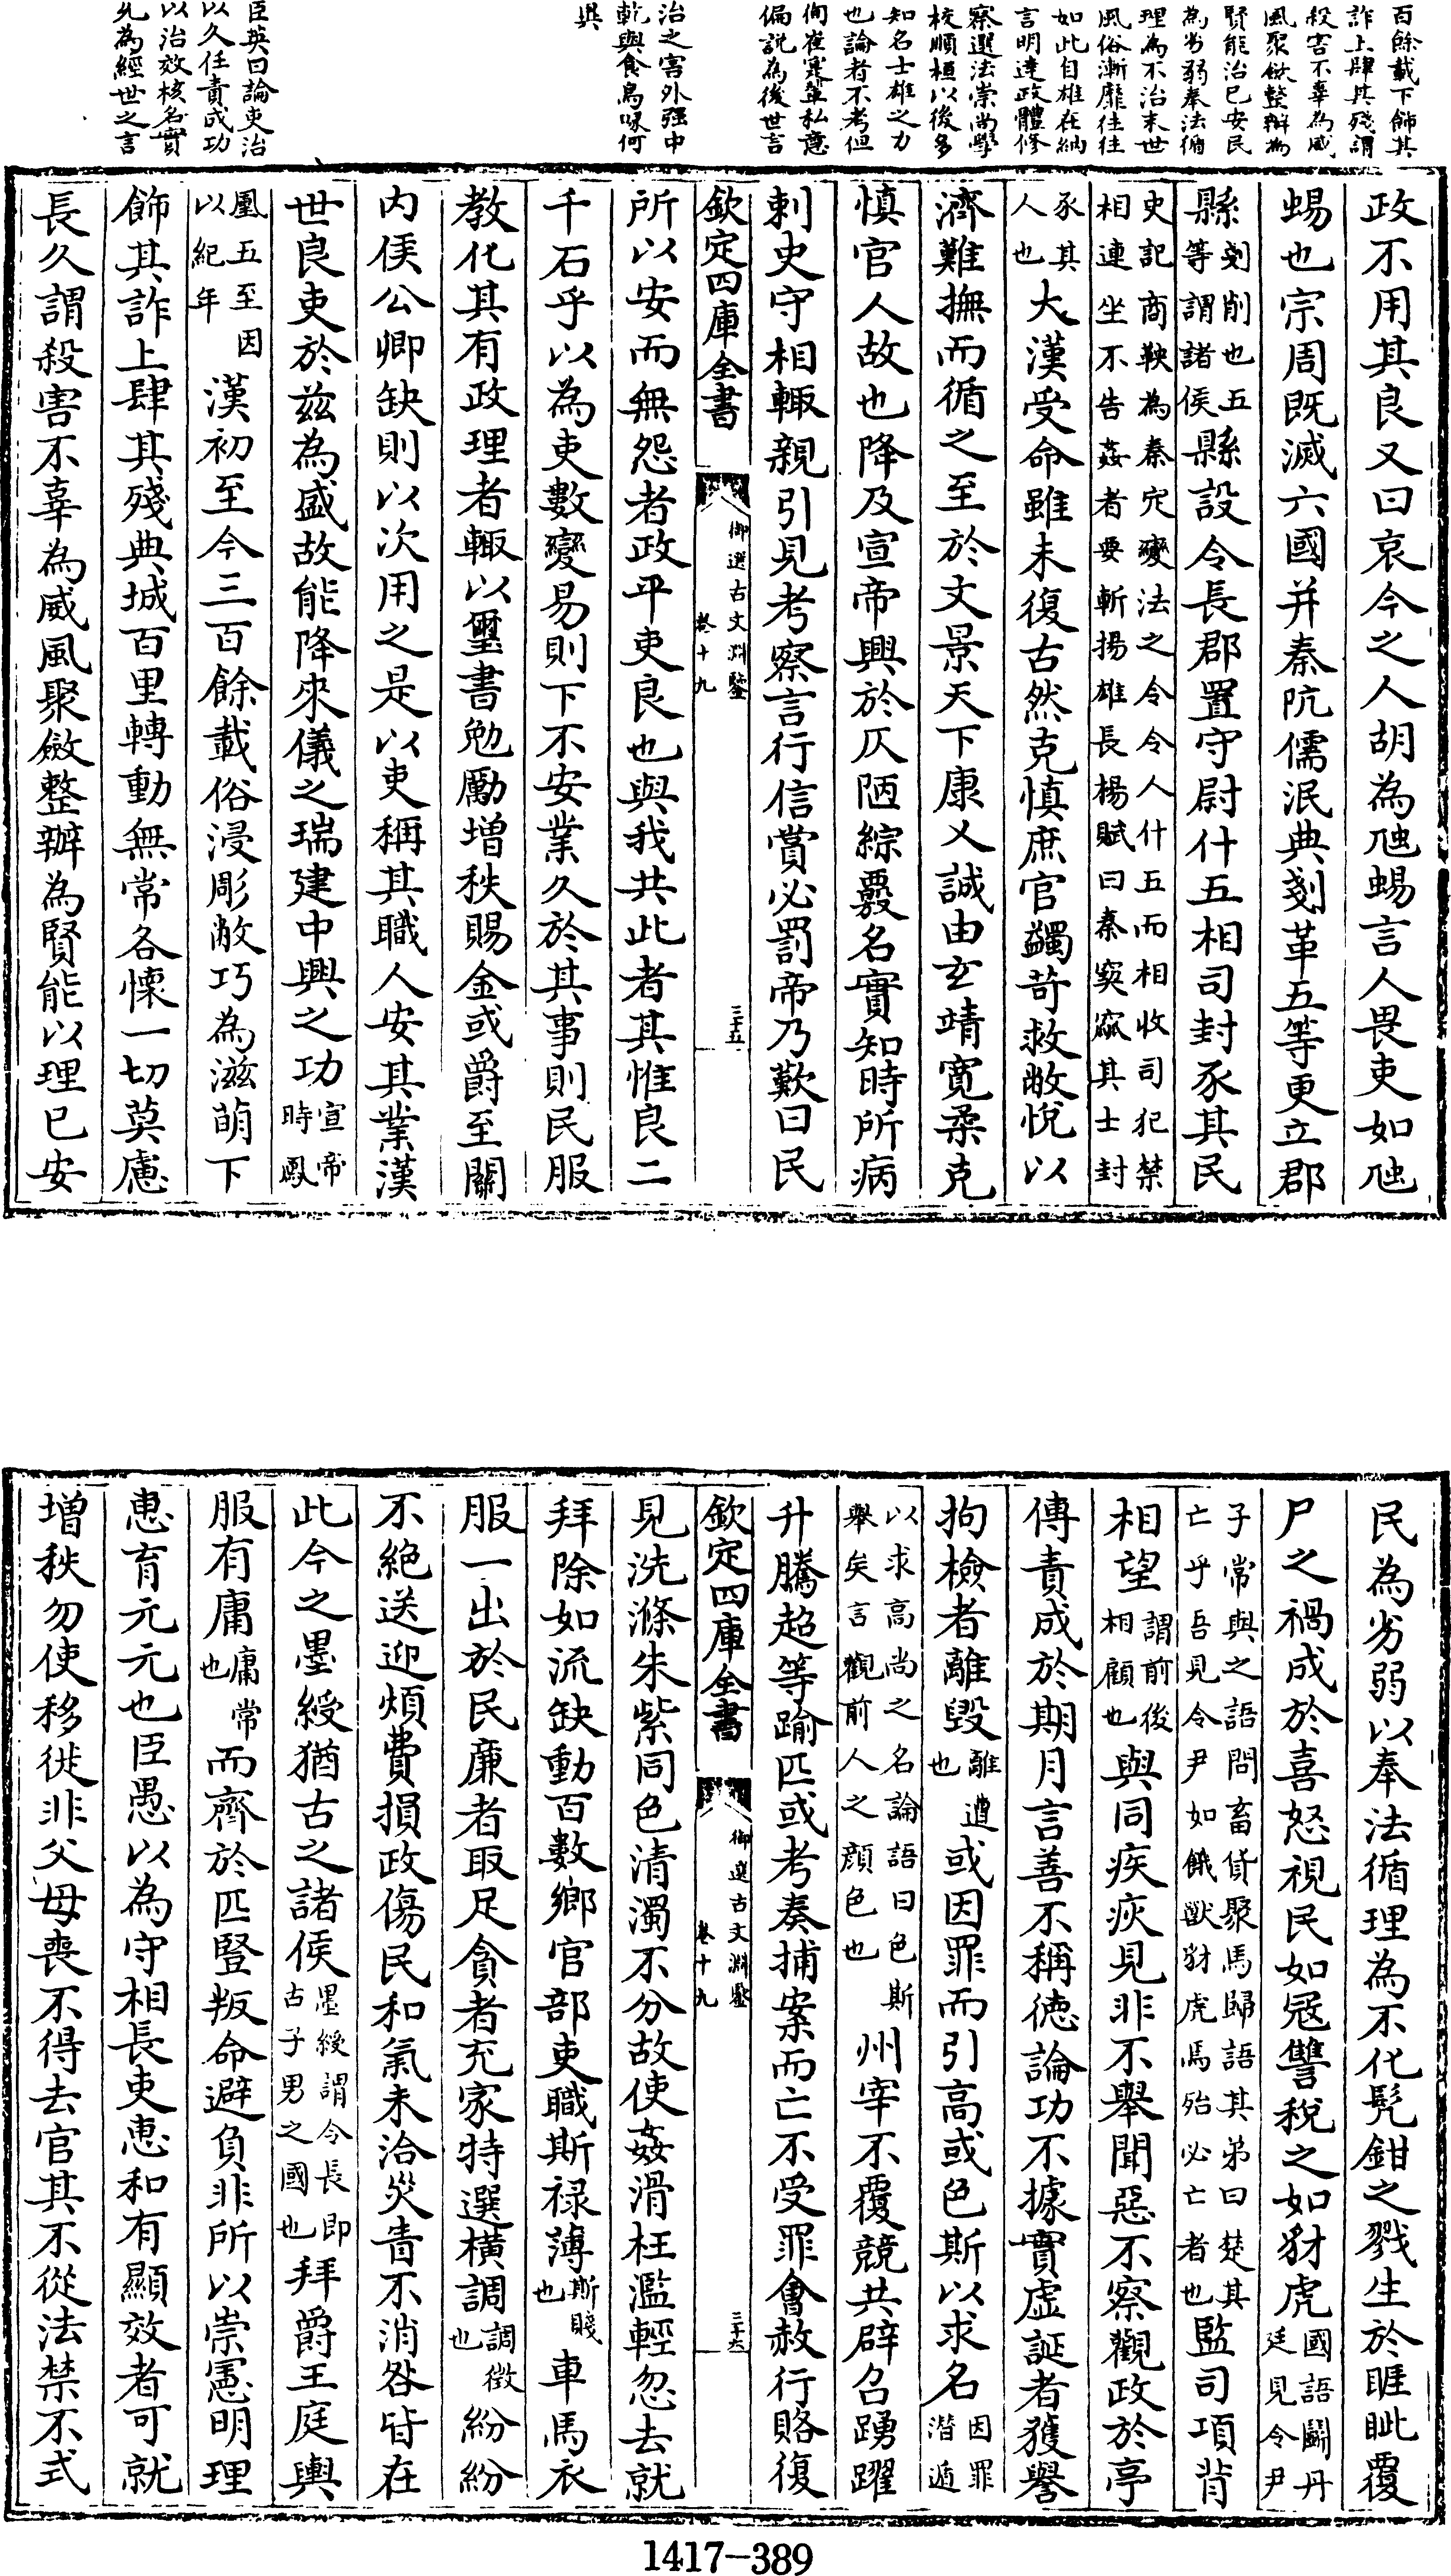 百餘載下飾其
詐上肆其殘謂
殺害不辜為威
風聚斂整辦為
賢能治已安民
為劣弱奉法循
理為不治末世
風俗漸靡往往
如此自雄在納
言明達政體修
察選法崇尚學
校順桓以後多
知名士雄之力
也論者不考但
徇崔寔輩私意
偏説為後世言
治之害外強中
乾與食烏喙何
異
臣英曰論吏治
以久任責成功
以治效核名實
允為經世之言
政不用其良又曰哀今之人胡為虺蜴言人畏吏如虺
蜴也宗周既滅六國并秦阬儒泯典剗革五等更立郡
縣剗削也五等謂諸侯縣設令長郡置守尉什五相司封豕其民
史記商鞅為秦定變法之令令人什五而相收司犯禁相連坐不告姦者要斬揚雄長楊賦曰秦窫窳其士封
豕其人也大漢受命雖未復古然克慎庶官蠲苛救敝悅以
濟難撫而循之至於文景天下康乂誠由玄靖寛柔克
慎官人故也降及宣帝興於仄陋綜覈名實知時所病
刺史守相輒親引見考察言行信賞必罰帝乃歎曰民
欽定四庫全書 御選古文淵鑒 卷十九 三十五
所以安而無怨者政平吏良也與我共此者其惟良二
千石乎以為吏數變易則下不安業久於其事則民服
教化其有政理者輒以璽書勉勵增秩賜金或爵至關
内侯公卿缺則以次用之是以吏稱其職人安其業漢
世良吏於兹為盛故能降來儀之瑞建中興之功宣帝時鳳
凰五至因以紀年漢初至今三百餘載俗浸彫敝巧為滋萌下
飾其詐上肆其殘典城百里轉動無常各懷一切莫慮
長久謂殺害不辜為威風聚斂整辦為賢能以理已安
民為劣弱以奉法循理為不化髡鉗之戮生於睚眦覆
尸之禍成於喜怒視民如冦讐稅之如豺虎國語鬬丹廷見令尹
子常與之語問畜貨聚馬歸語其弟曰楚其亡乎吾見令尹如餓獸豺虎焉殆必亡者也監司項背
相望謂前後相顧也與同疾疢見非不舉聞惡不察觀政於亭
傳責成於期月言善不稱德論功不據實虛誕者獲譽
拘檢者離毀離遭也或因罪而引高或色斯以求名因罪潛遁
以求高尚之名論語曰色斯舉矣言觀前人之顔色也州宰不覆競共辟召踴躍
升騰超等踰匹或考奏捕案而亡不受罪會赦行賂復
欽定四庫全書 御選古文淵鑒 卷十九 三十六
見洗滌朱紫同色清濁不分故使姦滑枉濫輕忽去就
拜除如流缺動百數鄉官部吏職斯禄薄斯賤也車馬衣
服一出於民廉者取足貪者充家特選横調調徵也紛紛
不絶送迎煩費損政傷民和氣未洽災眚不消咎皆在
此今之墨綬猶古之諸侯墨綬謂令長即古子男之國也拜爵王庭輿
服有庸庸常也而齊於匹豎叛命避負非所以崇憲明理
惠育元元也臣愚以為守相長吏惠和有顯效者可就
增秩勿使移徙非父母喪不得去官其不從法禁不式
1417-389